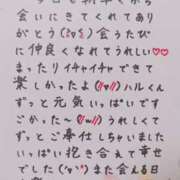 会いにきてくれてあり
がとう(≧▽≦) 会うたび
に仲良くなれてうれしい♥
まったりイチャイチャできて
楽しかったよ(〃∇〃)ハルくん
ずっと元気いっぱいです
ごかった~(〃ω〃)ず
っとご奉仕しちゃいました
いっぱい抱き合えて幸せ
でした(*'▽'*)また会える日